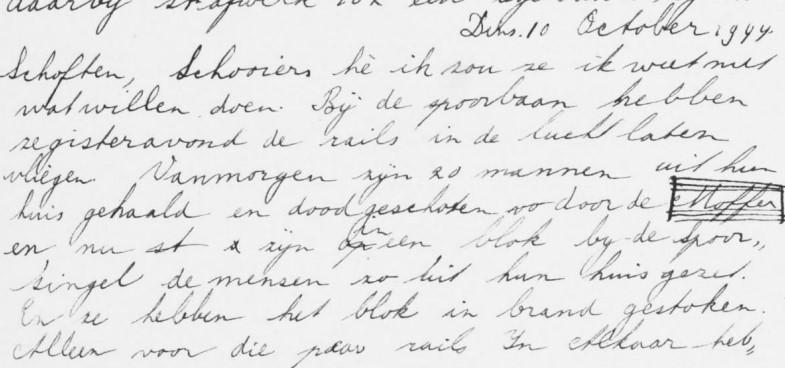 daarbij strafwerk
Dins. 10 October 1944.
Schoften, Schooiers hè ik zou ze ik weet niet
wat willen doen. Bij de spoorbaan hebben
ze gisteravond de rails in de lucht laten
vliegen. Vanmorgen zijn 20 mannen uit hun
huis gehaald en doodgeschoten zo door de Moffen
en nu st x zijn in een blok by de Spoor,,
singel de mensen zo uit hun huis gezet.
En ze hebben het blok in brand gestoken.
Alleen voor die paar rails In Alkaar heb,,